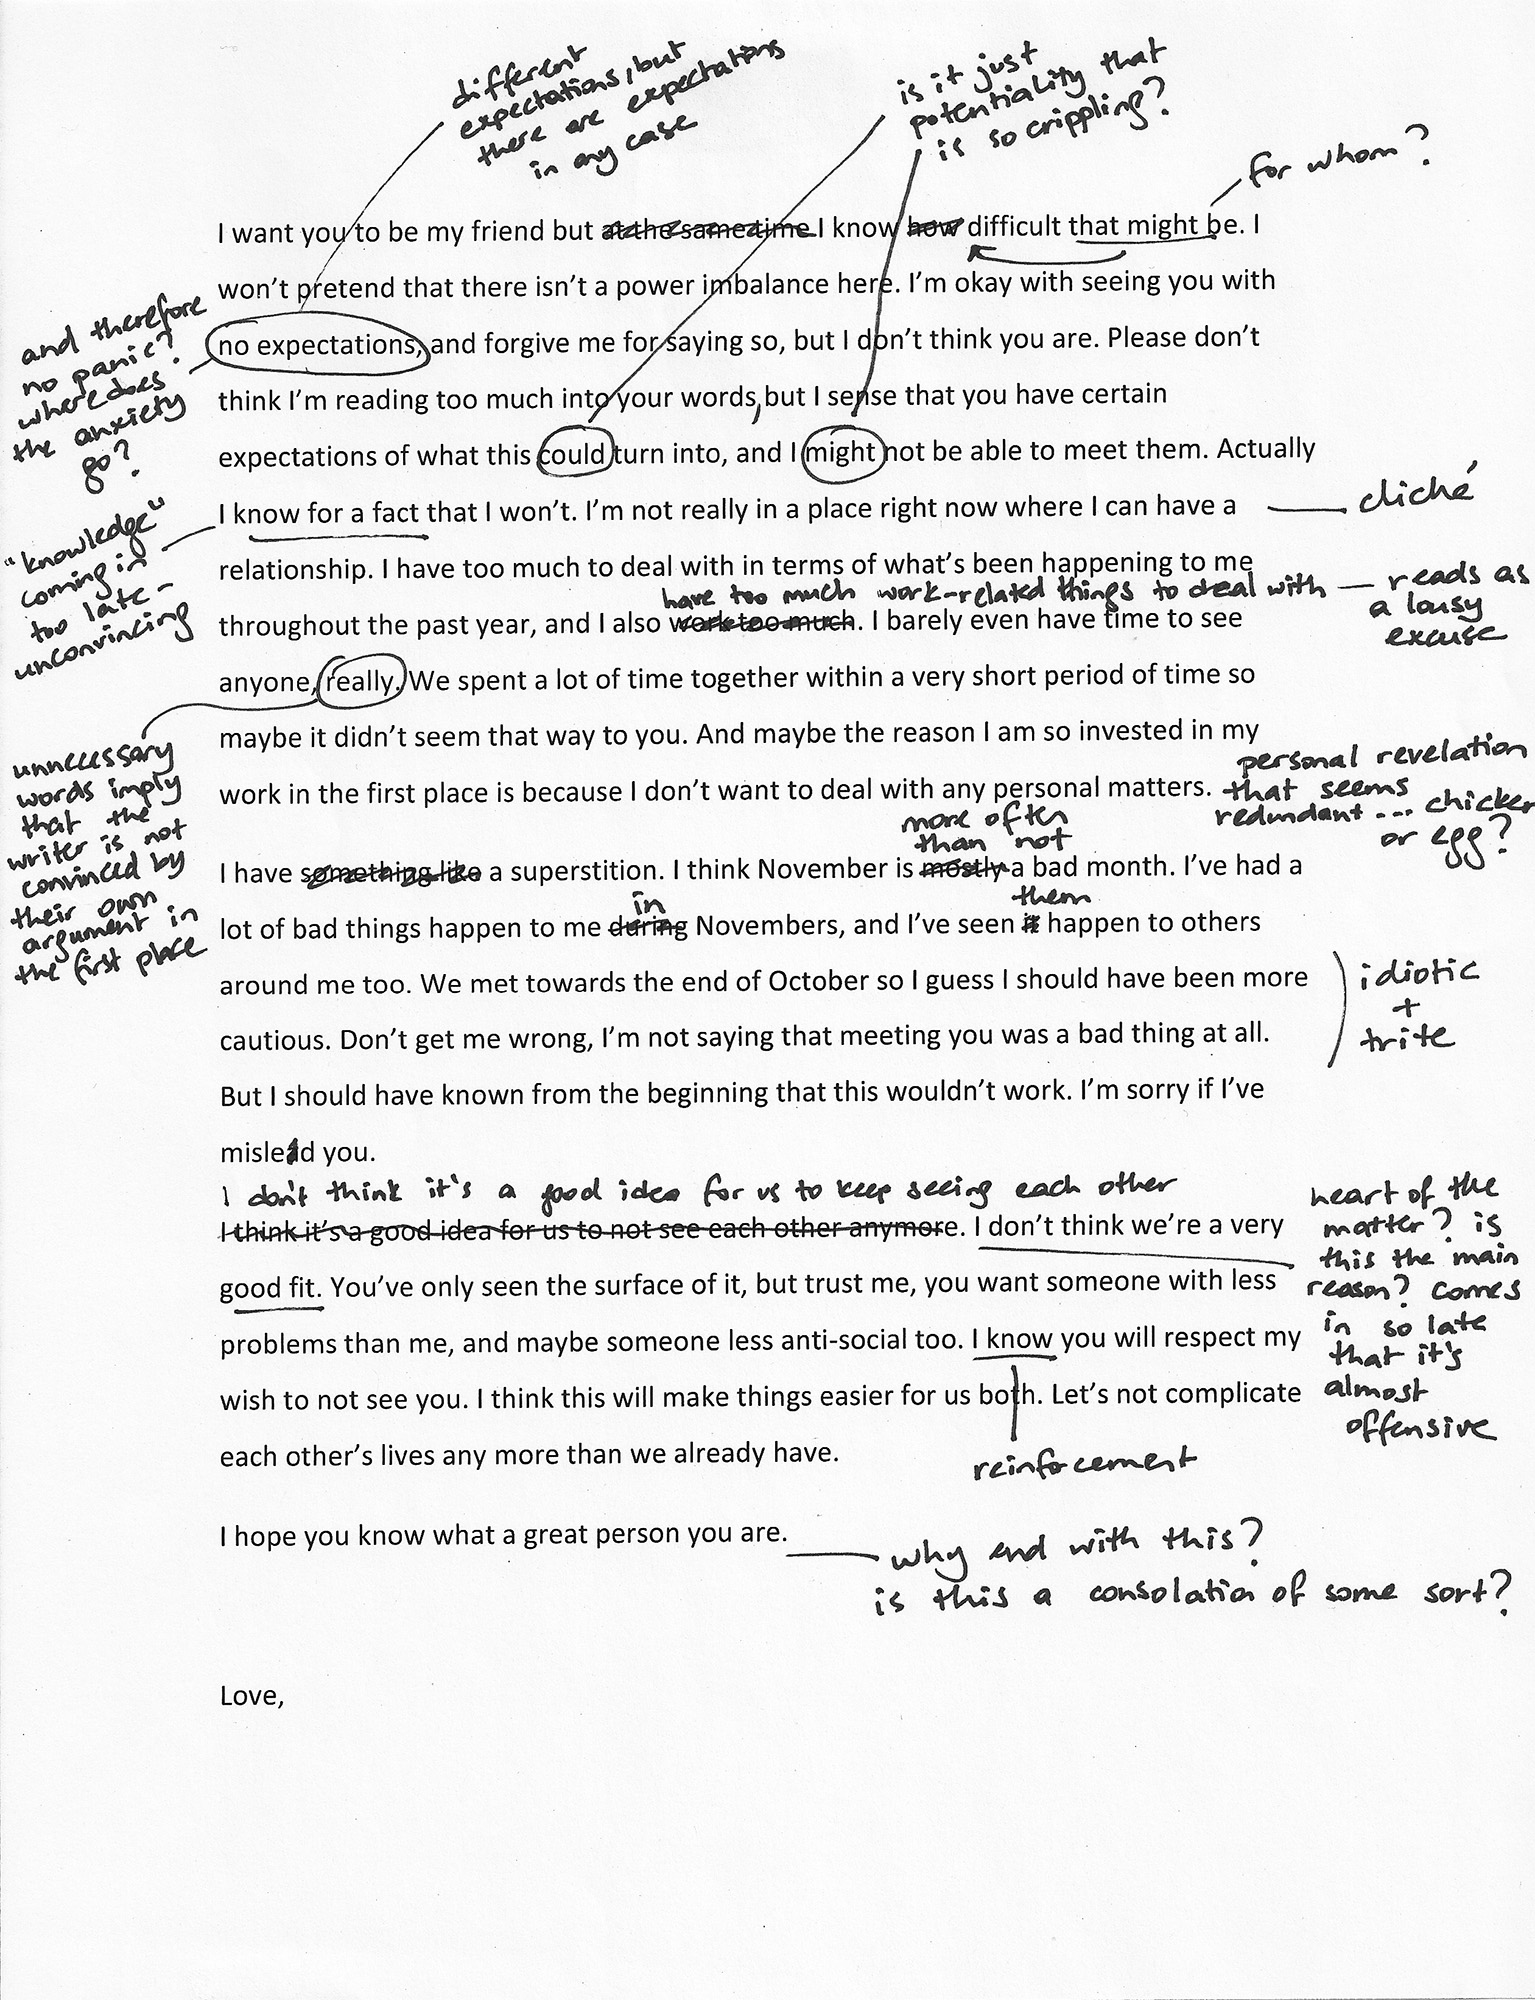 different
expectations, but
there are expectations
in any case
is it just
potentiality that
is so crippling?
for whom?
I want you to be my friend but at the same time I know how difficult that might be. I
won't pretend that there isn't a power imbalance here. I'm okay with seeing you with
and therefore
no panic?
where does
the anxiety
go?
no expectations, and forgive me for saying so, but I don't think you are. Please don't
think I'm reading too much into your words, but I sense that you have certain
expectations of what this could turn into, and I might not be able to meet them. Actually
"knowledge"
coming in
too late –
unconvincing
I know for a fact that I won't. I'm not really in a place right now where I can have a
cliché
relationship. I have too much to deal with in terms of what's been happening to me
have too much work-related things to deal with
reads as
a lousy
excuse
throughout the past year, and I also work too much. I barely even have time to see
anyone, really. We spent a lot of time together within a very short period of time so
unnecessary
words imply
that the
writer is not
convinced by
their own
argument in
the first place
maybe it didn't seem that way to you. And maybe the reason I am so invested in my
work in the first place is because I don't want to deal with any personal matters.
personal revelation
that seems
redundant --- chicken
or egg?
more often
than not
I have something like a superstition. I think November is mostly a bad month. I've had a
in
them
lot of bad things happen to me during Novembers, and I've seen it happen to others
around me too. We met towards the end of October so I guess I should have been more
cautious. Don't get me wrong, I'm not saying that meeting you was a bad thing at all.
idiotic
+
trite
But I should have known from the beginning that this wouldn't work. I'm sorry if I've
misled you.
I don't think it's a good idea for us to keep seeing each other
I think it's a good idea for us to not see each other anymore. I don't think we're a very
good fit. You've only seen the surface of it, but trust me, you want someone with less
problems than me, and maybe someone less anti-social too. I know you will respect my
wish to not see you. I think this will make things easier for us both. Let's not complicate
each other's lives any more than we already have.
heart of the
matter? is
this the main
reason? comes
in so late
that it's
almost
offensive
reinforcement
I hope you know what a great person you are.
why end with this?
is this a consolation of some sort?
Love,